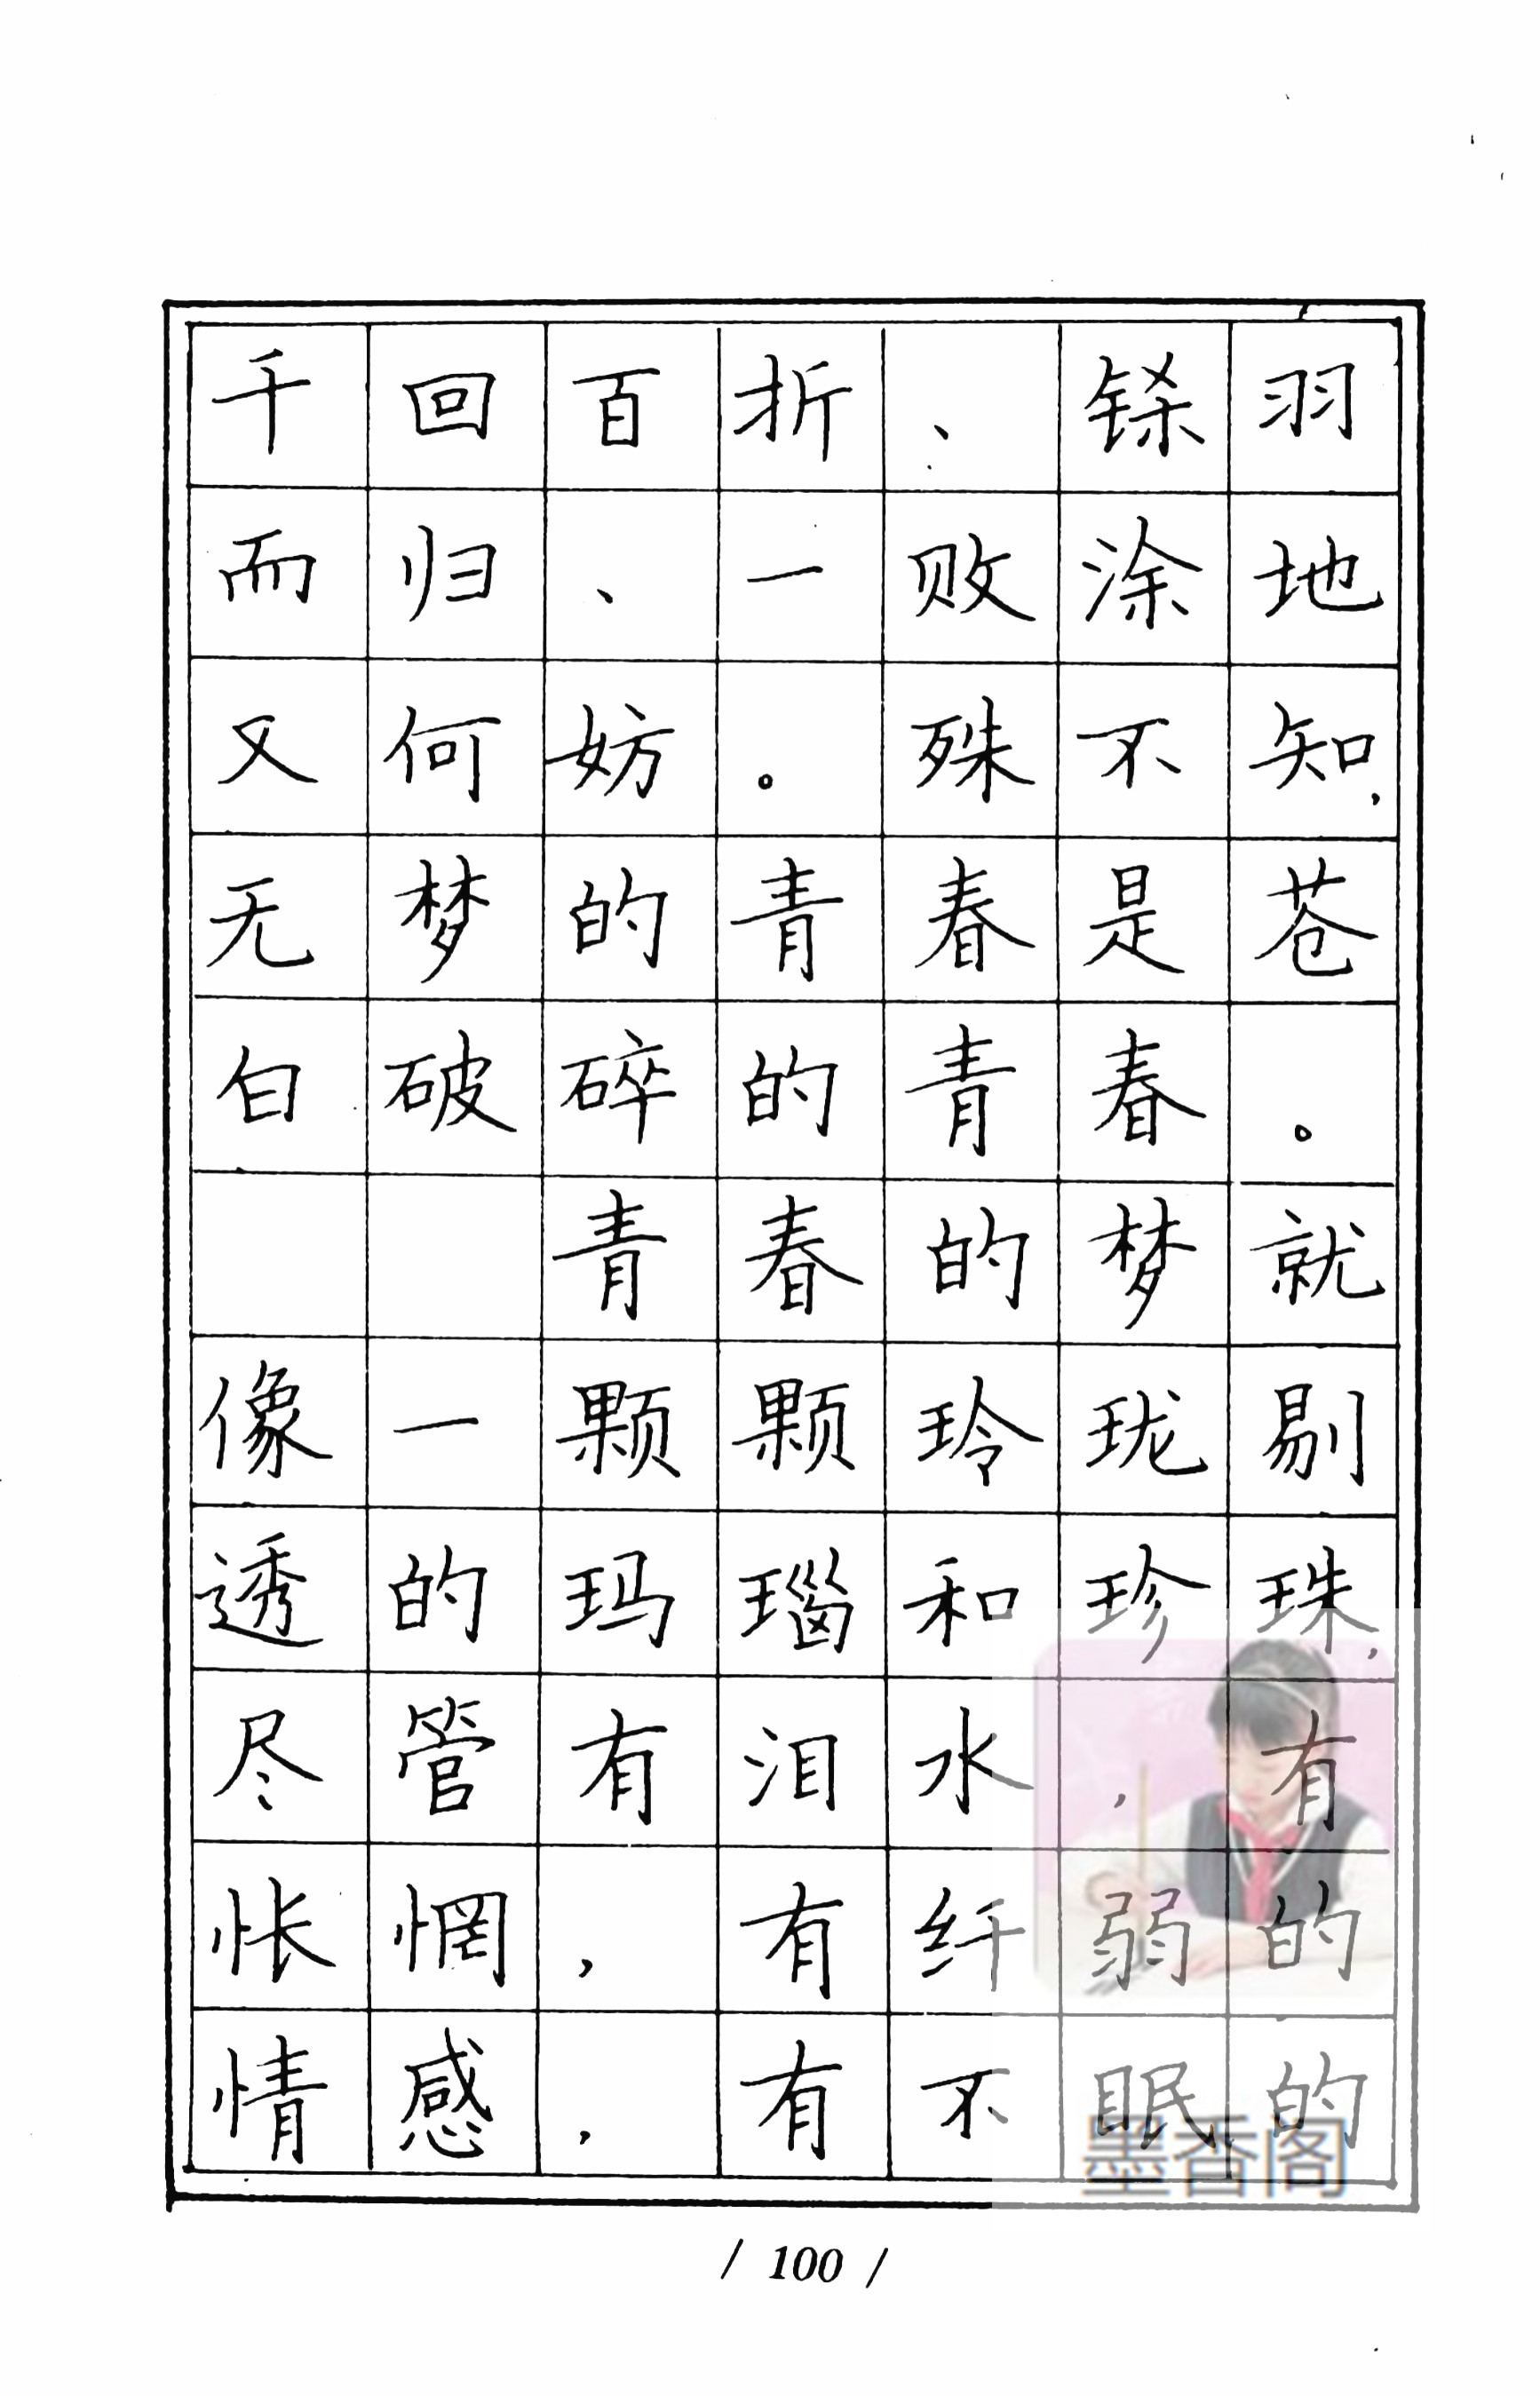 千回百折、铩羽
而归、一败涂地
又何妨。殊不知，
无梦的青春是苍
白破碎的青春。
青春的梦就
像一颗颗玲珑剔
透的玛瑙和珍珠，
尽管有泪水，有
怅惘，有纤弱的
情感，有不眠的
墨香阁
/ 100 /